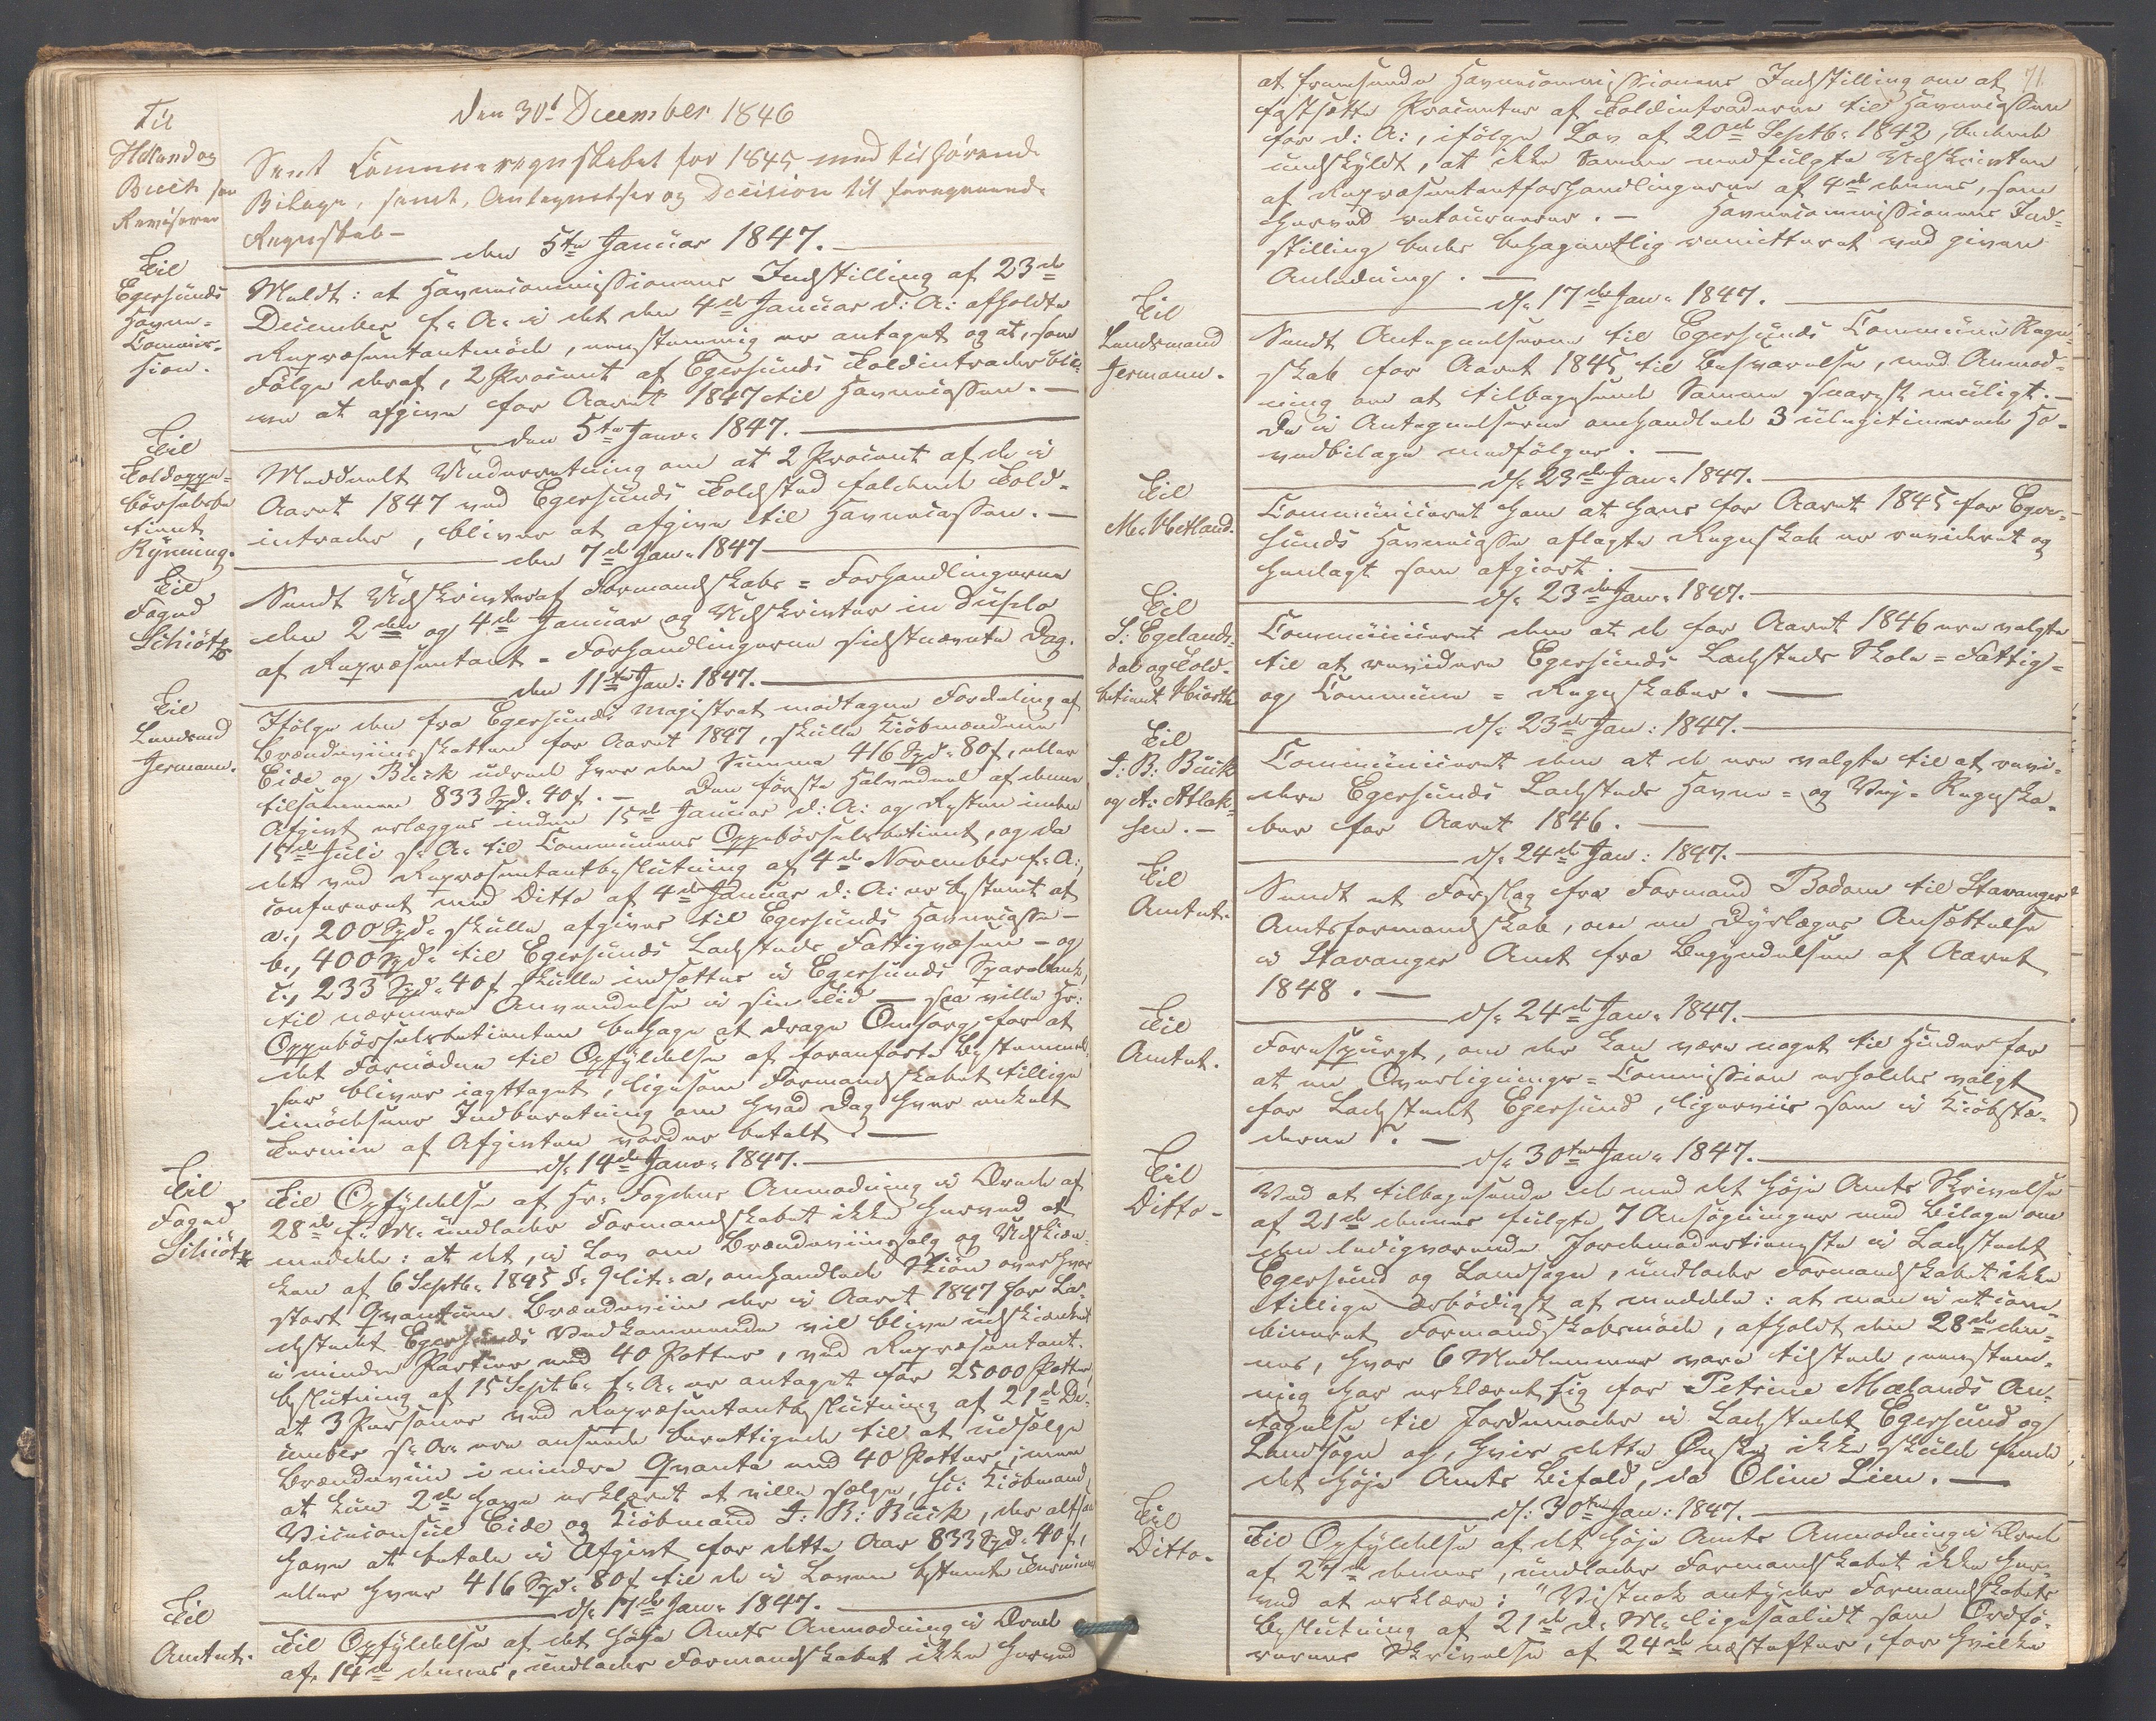 Den 30t December 1846
Til
Hetland og
Buch som
Revisorer
Sendt Communeregnskabet for 1845 med tilhørende
Bilage, samt, Antegnelser og Decision til foregaaende
Regnskab –
den 5te Januar 1847.
Til
Egersunds
Havne-
Commis-
sion.
Meldt: at Havnecommissionens Indstilling af 23de
December f. A. i det den 4de Januar d: A: afholdte
Repræsentantmöde, eenstemmig er antaget og at, som
Fölge deraf, 2 Procent af Egersunds Toldintrader bli-
ve at afgive for Aaret 1847 til Havnecassen. –
den 5te Janr. 1847.
Til
Toldoppe-
börselsbe
tient
Rÿnning.
Meddeelt Underretning om at 2 Procent af de i
Aaret 1847 ved Egersunds Toldsted faldende Told-
intrader, bliver at afgive til Havnecassen. –
den 7de Jan. 1847
Til
Foged
Schiötz
Sendt Udskrivter af Formandskabs-Forhandlingerne
den 2den og 4de Januar og Udskrivter in duplo
af Repræsentant-Forhandlingerne sidstnævnte Dag.
den 11te Jan: 1847.
Til
Lensmd
Jermann.
Ifölge den fra Egersunds Magistrat modtagne Fordeling af
Brændeviinsskatten for Aaret 1847, skulle Kiöbmændene
Eide og Buck udrede hver den Summa 416 Spd. 80 s, eller
tilsammen 833 Spd. 40 s. – Den förste Halvedeel af denne
Afgivt erlægges inden 15de Januar d: A: og Resten inden
15de Juli s. A. til Communens Oppebörselsbetient, og da
det ved Repræsentantbeslutning af 4de November f. A:,
confereret med Ditto af 4de Januar d: A: er bestemt at
a., 200 Spd. skulle afgives til Egersunds Havnecasse –
b., 400 Spd. til Egersunds Ladesteds Fattigvæsen – og
c., 233 Spd. 40 s skulle indsættes i Egersunds Sparebank,
til nærmere Anvendelse i sin Tid – saa ville Hr:
Oppebörselsbetienten behage at drage Omsorg for at
det Fornödne til Opfÿldelse af foranförte Bestemmel-
ser bliver iagttaget, ligesom Formandskabet tillige
imödeseer Indberetning om hvad Dag hver enkelt
Termin af Afgivten vorder betalt. –
d. 14de Janr. 1847.
Til
Foged
Schiötz
Til Opfÿldelse af Hr. Fogdens Anmodning i Brev af
28de f. M. undlader Formandskabet ikke herved at
meddele: at det, i Lov om Brændeviinssalg og Udskiæn-
ken af 6 Septb. 1845 §. 9 lit. a, omhandlede Skiön over hvor
stort Qvantum Brændeviin der i Aaret 1847 for La-
destedet Egersunds Vedkommende vil blive udskienket
i mindre Partier end 40 Potter, ved Repræsentant-
beslutning af 15 Septb. f. A. er antaget for 25000 Potter,
at 3 Personer ved Repræsentantbeslutning af 21de De-
cember f. A. ere anseede berettigede til at udsælge
Brændeviin i mindre Qvanta end 40 Potter; men
at kun 2de have erklæret at ville sælge, s: Kiöbmand,
Viceconsul Eide og Kiöbmand J: B: Buck, der altsaa
have at betale i Afgivt for dette Aar 833 Spd. 40 s,
eller hver 416 Spd. 80 s til de i Loven bestemte Terminer
d. 17de Jan. 1847.
Til
Amtet.
Til Opfÿldelse af det höje Amts Anmodning i Brev
af 14de dennes, undlader Formandskabet ikke herved
71
at fremsende Havnecommissionens Indstilling om at
fastsætte Procenter af Toldintraderne til Havnecassen
for d: A:, ifölge Lov af 20de Septb. 1842, bedende
undskÿldt, at ikke Samme medfulgte Udskrivten
af Repræsentantforhandlingerne af 4de dennes, som
herved retourneres. – Havnecommissionens Ind-
stilling bedes behageligtlig remitteret ved given
Anledning. –
d. 17de Jan. 1847.
Til
Lendsmand
Jermann.
Sendt Antegnelserne til Egersunds Commune Regn-
skab for Aaret 1845 til Besvarelse, med Anmod-
ning om at tilbagesende Samme snarest muligt. –
De i Antegnelserne omhandlede 3 ulegitimerede Ho-
vedbilage medfölger. –
d. 23de Jan. 1847.
Til
M. Hetland.
Communiceret ham at hans for Aaret 1845 for Eger-
sunds Havnecasse aflagte Regnskab er revideret og
henlagt som afgiort. –
d. 23de Jan. 1847.
Til
S: Egelands-
dal og Told-
betient Hiorth
Communiceret dem at de for Aaret 1846 ere valgte
til at revidere Egersunds Ladesteds Skole- Fattig-
og Commune-Regnskaber. –
d. 23de Jan: 1847.
Til
J: B: Buck
og A: Aslak-
sen. –
Communiceret dem at de ere valgte til at revi-
dere Egersunds Ladesteds Havne- og Vej-Regnska-
ber for Aaret 1846. –
d. 24de Jan: 1847.
Til
Amtet.
Sendt et Forslag fra Formand Bodom til Stavanger
Amtsformandskab, om en Dÿrlæges Ansættelse
i Stavanger Amt fra Begÿndelsen af Aaret
1848. –
d. 24de Jan. 1847.
Til
Amtet.
Forespurgt, om der kan være noget til Hinder for
at en Overlignings-Commission erholdes valgt
for Ladestedet Egersund, ligerviis som i Kiöbstæ-
derne?. –
d. 30te Jan. 1847.
Til
Ditto –
Ved at tilbagesende de med det höje Amts Skrivelse
af 21de dennes fulgte 7 Ansögninger med Bilage om
den ledigværende Jordemodertieneste i Ladestedet
Egersund og Landsogn, undlader Formandskabet ikke
tillige ærbödigst at meddele: at man i et com-
bineret Formandskabsmöde, afholdt den 28de den-
nes, hvor 6 Medlemmer vare tilstede, eenstem-
mig har erklæret sig for Petrine Mælands An-
tagelse til Jordemoder i Ladestedet Egersund og
Landsogn og, hvis dette Ønske ikke skulde finde
det höje Amts Bifald, da Oline Lien. –
d: 30te Jan: 1847.
Til
Ditto –
Til Opfÿldelse af det höje Amts Anmodning i Brev
af 27de dennes, undlader Formandskabet ikke her-
ved at erklære: "Vistnok antÿder Formandskabets
Beslutning af 21de d. M. ligesaalidt som Ordfö-
rerens Skrivelse af 24de næstefter, for hvilke